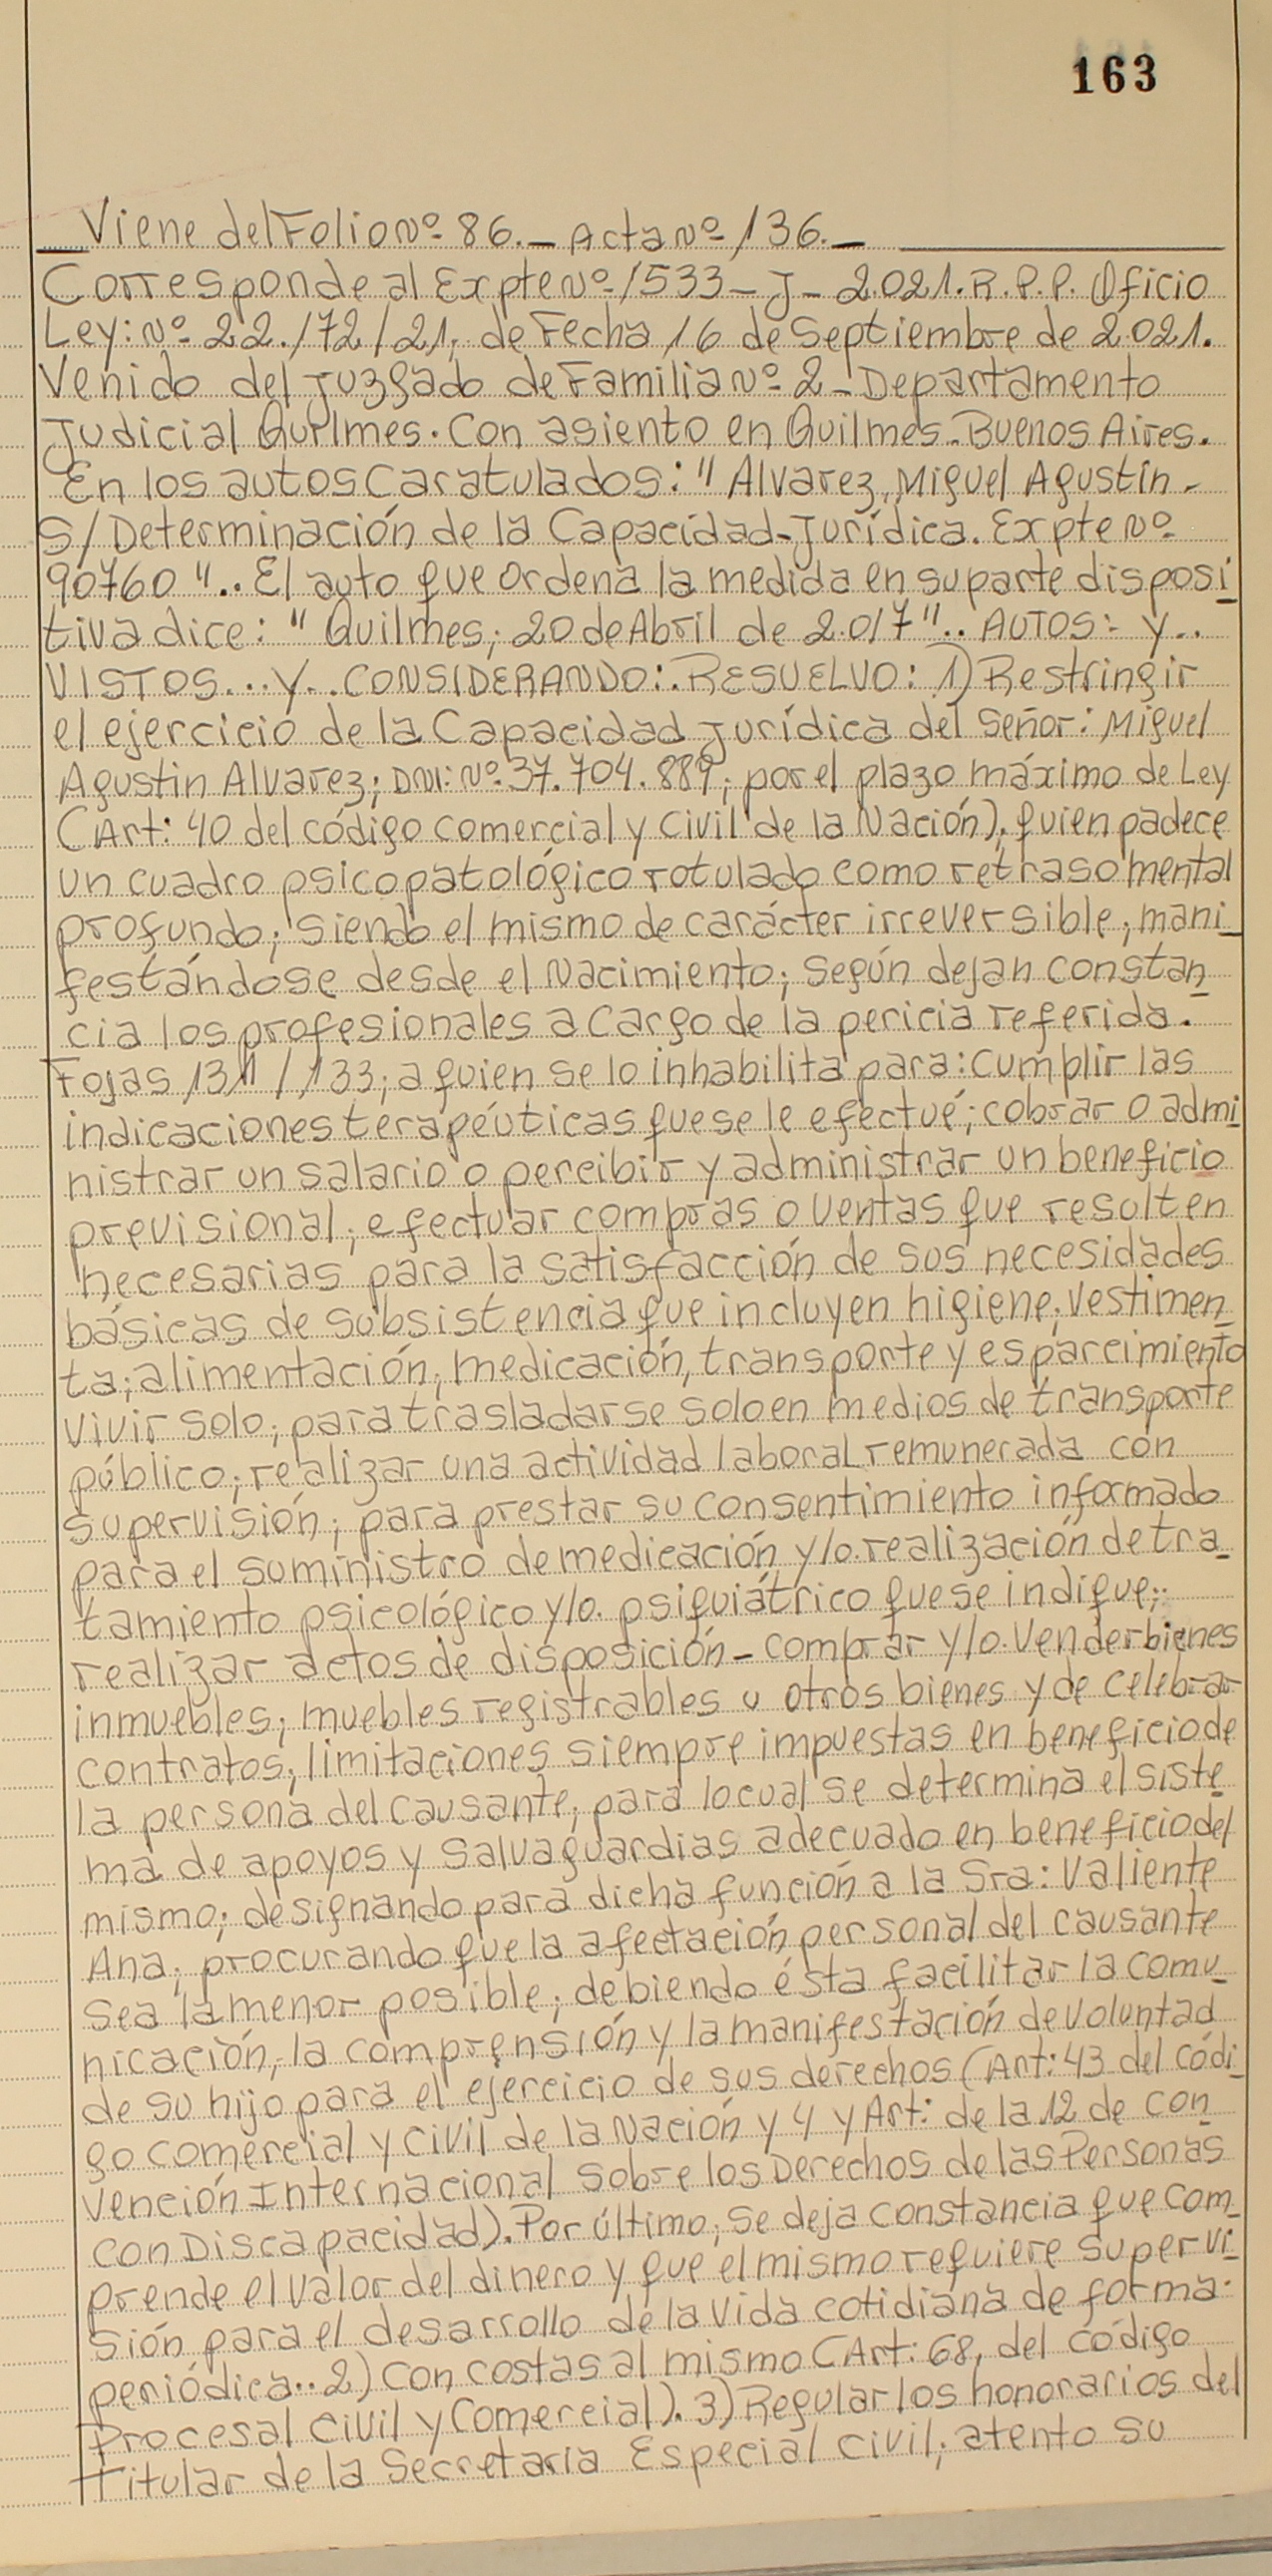 163
Viene del Folio Nº 86.- Acta Nº 136.-
Corresponde al Expte Nº 1533-J-2.021.R.P.P. Oficio
Ley: Nº 22.172/21; de Fecha 16 de Septiembre de 2.021.
Venido del Juzgado de Familia Nº 2-Departamento
Judicial Quilmes. Con asiento en Quilmes-Buenos Aires.
En los autos Caratulados: "Alvarez, Miguel Agustín-
S/Determinación de la Capacidad-Jurídica. Expte Nº
90760".. El auto que ordena la medida en su parte disposi
tiva dice: "Quilmes; 20 de Abril de 2.017".. AUTOS: y..
VISTOS... Y.. CONSIDERANDO:. RESUELVO: 1) Restringir
el ejercicio de la Capacidad Jurídica del Señor: Miguel
Agustin Alvarez; DNI: Nº 37.704.889; por el plazo máximo de Ley
(Art: 40 del código comercial y civil de la Nación), quien padece
un cuadro psicopatológico rotulado como retraso mental
profundo; siendo el mismo de carácter irreversible; mani_
festándose desde el Nacimiento; según dejan constan_
cia los profesionales a cargo de la pericia referida.
Fojas 131/133; a quien se lo inhabilita para: cumplir las
indicaciones terapéuticas que se le efectué; cobrar o admi_
nistrar un salario o percibir y administrar un beneficio
previsional; efectuar compras o ventas que resulten
necesarias para la satisfacción de sus necesidades
básicas de subsistencia que incluyen higiene; vestimen_
ta; alimentación; medicación, transporte y esparcimiento
vivir solo; para trasladarse solo en medios de transporte
público; realizar una actividad laboral remunerada con
supervisión; para prestar su consentimiento informado
para el suministro de medicación y/o. realización de tra_
tamiento psicológico y/o. psiquiátrico que se indique;
realizar actos de disposición-comprar y/o. Vender bienes
inmuebles; muebles registrables u otros bienes y de celebrar
contratos; limitaciones siempre impuestas en beneficio de
la persona del causante; para lo cual se determina el siste_
ma de apoyos y salvaguardias adecuado en beneficio del
mismo; designando para dicha función a la Sra: Valiente
Ana; procurando que la afectación personal del causante
sea la menor posible; debiendo ésta facilitar la comu_
nicación; la comprensión y la manifestación de voluntad
de su hijo para el ejercicio de sus derechos (Art: 43 del códi_
go comercial y civil de la Nación y 4 y Art: de la 12 de con_
vención Internacional sobre los Derechos de las Personas
con Discapacidad). Por último; se deja constancia que com_
prende el valor del dinero y que el mismo requiere supervi_
sión para el desarrollo de la vida cotidiana de forma
periódica.. 2) Con costas al mismo (Art: 68, del código
Procesal Civil y Comercial). 3) Regular los honorarios del
Titular de la Secretaria Especial civil; atento su